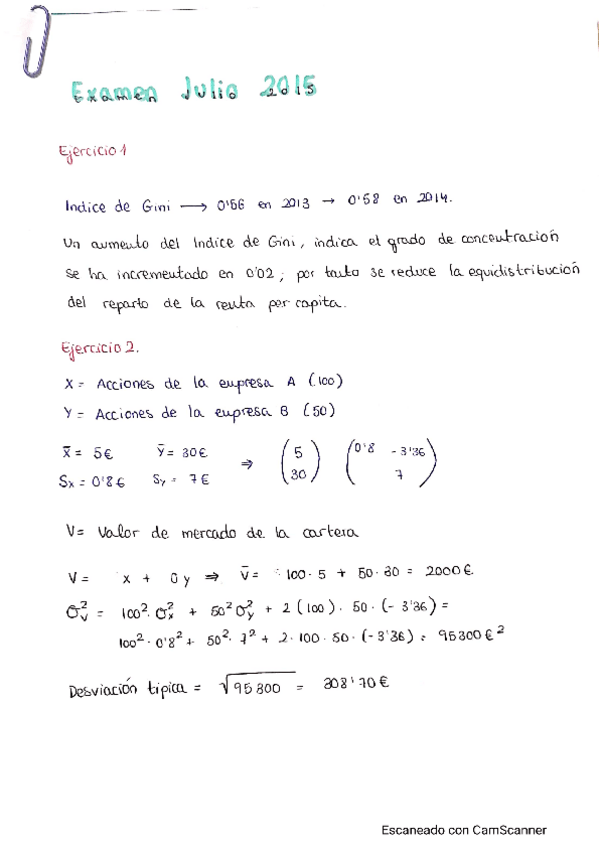 Examen Julio 2015
Ejercicio 1
Indice de Gini → 0'56 en 2013 → 0'58 en 2014.
Un aumento del Indice de Gini, indica el grado de concentración
se ha incrementado en 0'02; por tanto se reduce la equidistribución
del reparto de la renta per capita.
Ejercicio 2.
X = Acciones de la empresa A (100)
Y = Acciones de la empresa B (50)
X̄ = 5€ Ȳ = 30€ ⇒ (5 30) (0'8 -3'36 7)
Sx = 0'8€ Sy = 7€
V = Valor de mercado de la cartera
V = x + y ⇒ V̄ = 100·5 + 50·30 = 2000€
σ²v = 100²·σ²x + 50²σ²y + 2(100)·50·(-3'36) =
100²·0'8² + 50²·7² + 2·100·50·(-3'36) = 95300€²
Desviación típica = √95300 = 308'70€
Escaneado con CamScanner